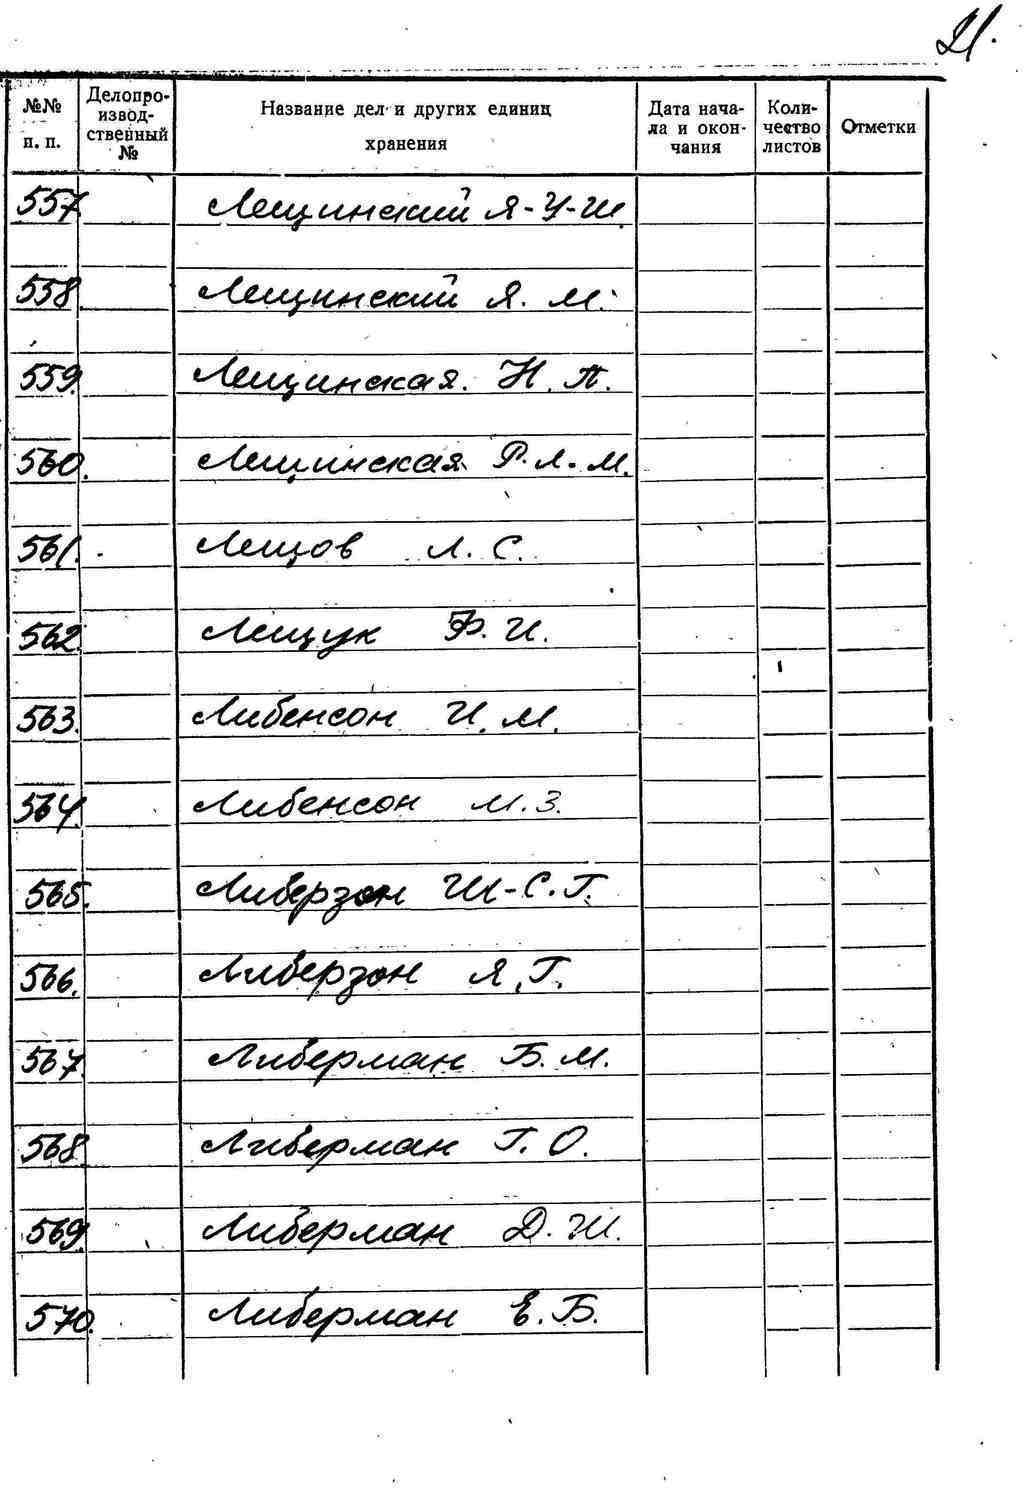 21.
№№ п. п. Делопроизводственный № Название дел и других единиц хранения Дата начала и окончания Количество листов Отметки
557. Лещинский Я-У-Ш.
558. Лещинский Я. М.
559. Лещинская Н. П.
560. Лещинская Р. Л. М.
561. Лещов Л. С.
562. Лещук Ф. И.
563. Либенсон И. М.
564. Либенсон М. З.
565. Либерзон Ш-С. Г.
566. Либерзон Я. Г.
567. Либерман Б. М.
568. Либерман Г. О.
569. Либерман Д. Ш.
570. Либерман Е. Б.